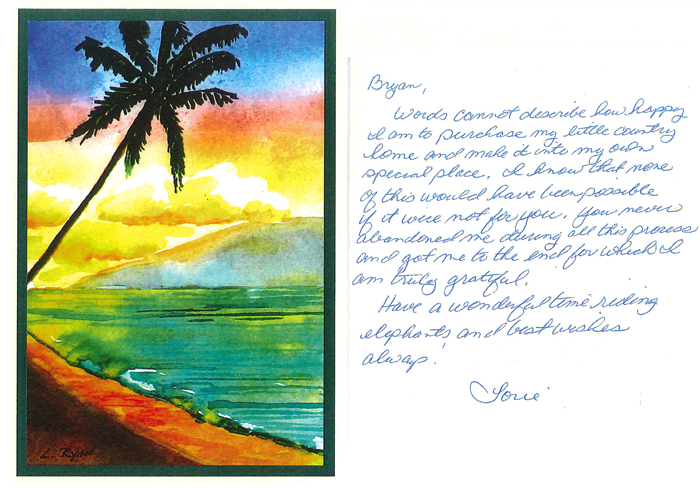 Bryan,
Words cannot describe how happy
I am to purchase my little country
home and make it into my own
special place. I know that none
of this would have been possible
if it were not for you. You never
abandoned me during all this process
and got me to the end for which I
am truly grateful.
Have a wonderful time riding
elephants and best wishes
always!
Lorie
L. Ryan